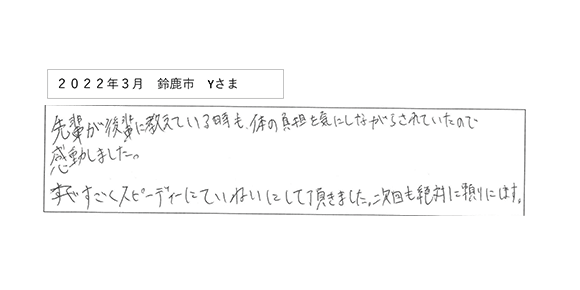 ２０２２年３月　鈴鹿市　Yさま
先輩が後輩に教えている時も、体の負担を気にしながらされていたので
感動しました。
すごくスピーディーにていねいにして頂きました。次回も絶対に頼りにします。